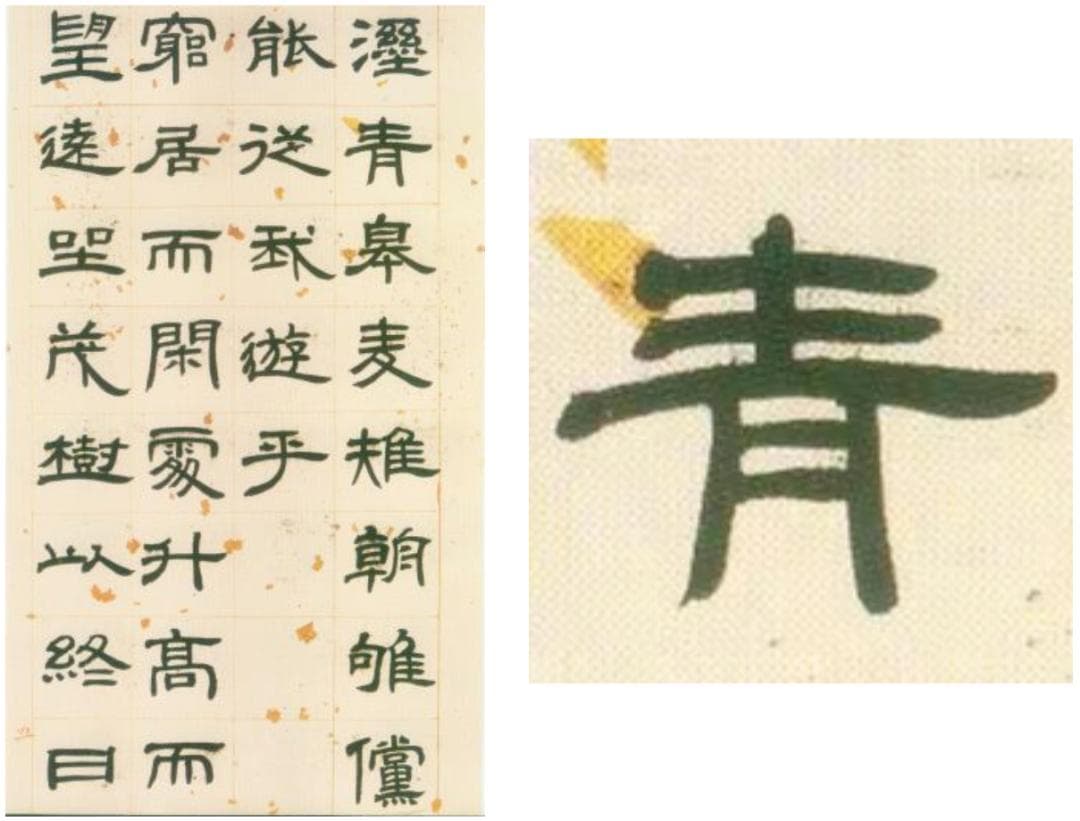 溼青皋麦雉朝雊儻
能從我遊乎
窮居而閑處升高而
望遠坐茂樹以終日
青